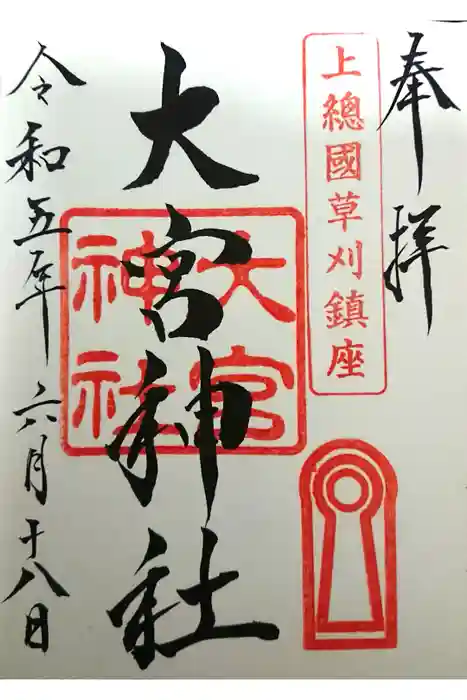 奉拝
上總國草刈鎮座
大宮神社
大宮神社
令和五年六月十八日